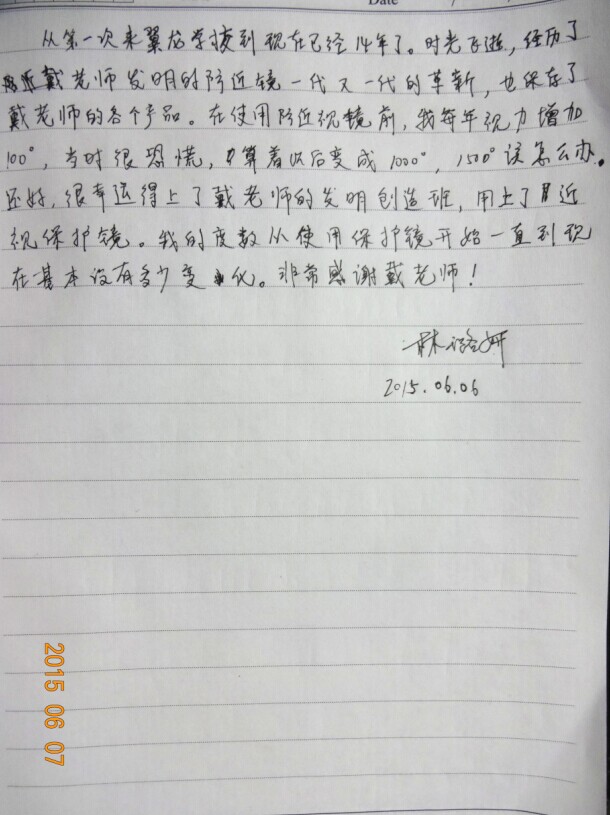 Date
从第一次来翼龙学校到现在已经14年了。时光飞逝，经历了
戴老师发明的防近镜一代又一代的革新，也保存了
戴老师的各个产品。在使用防近视镜前，我每年视力增加
100°，当时很恐慌，算着以后变成1000°，1500°该怎么办。
还好，很幸运得上了戴老师的发明创造班，用上了近
视保护镜。我的度数从使用保护镜开始一直到现
在基本没有多少变化。非常感谢戴老师！
林潞妍
2015.06.06
2015 06 07